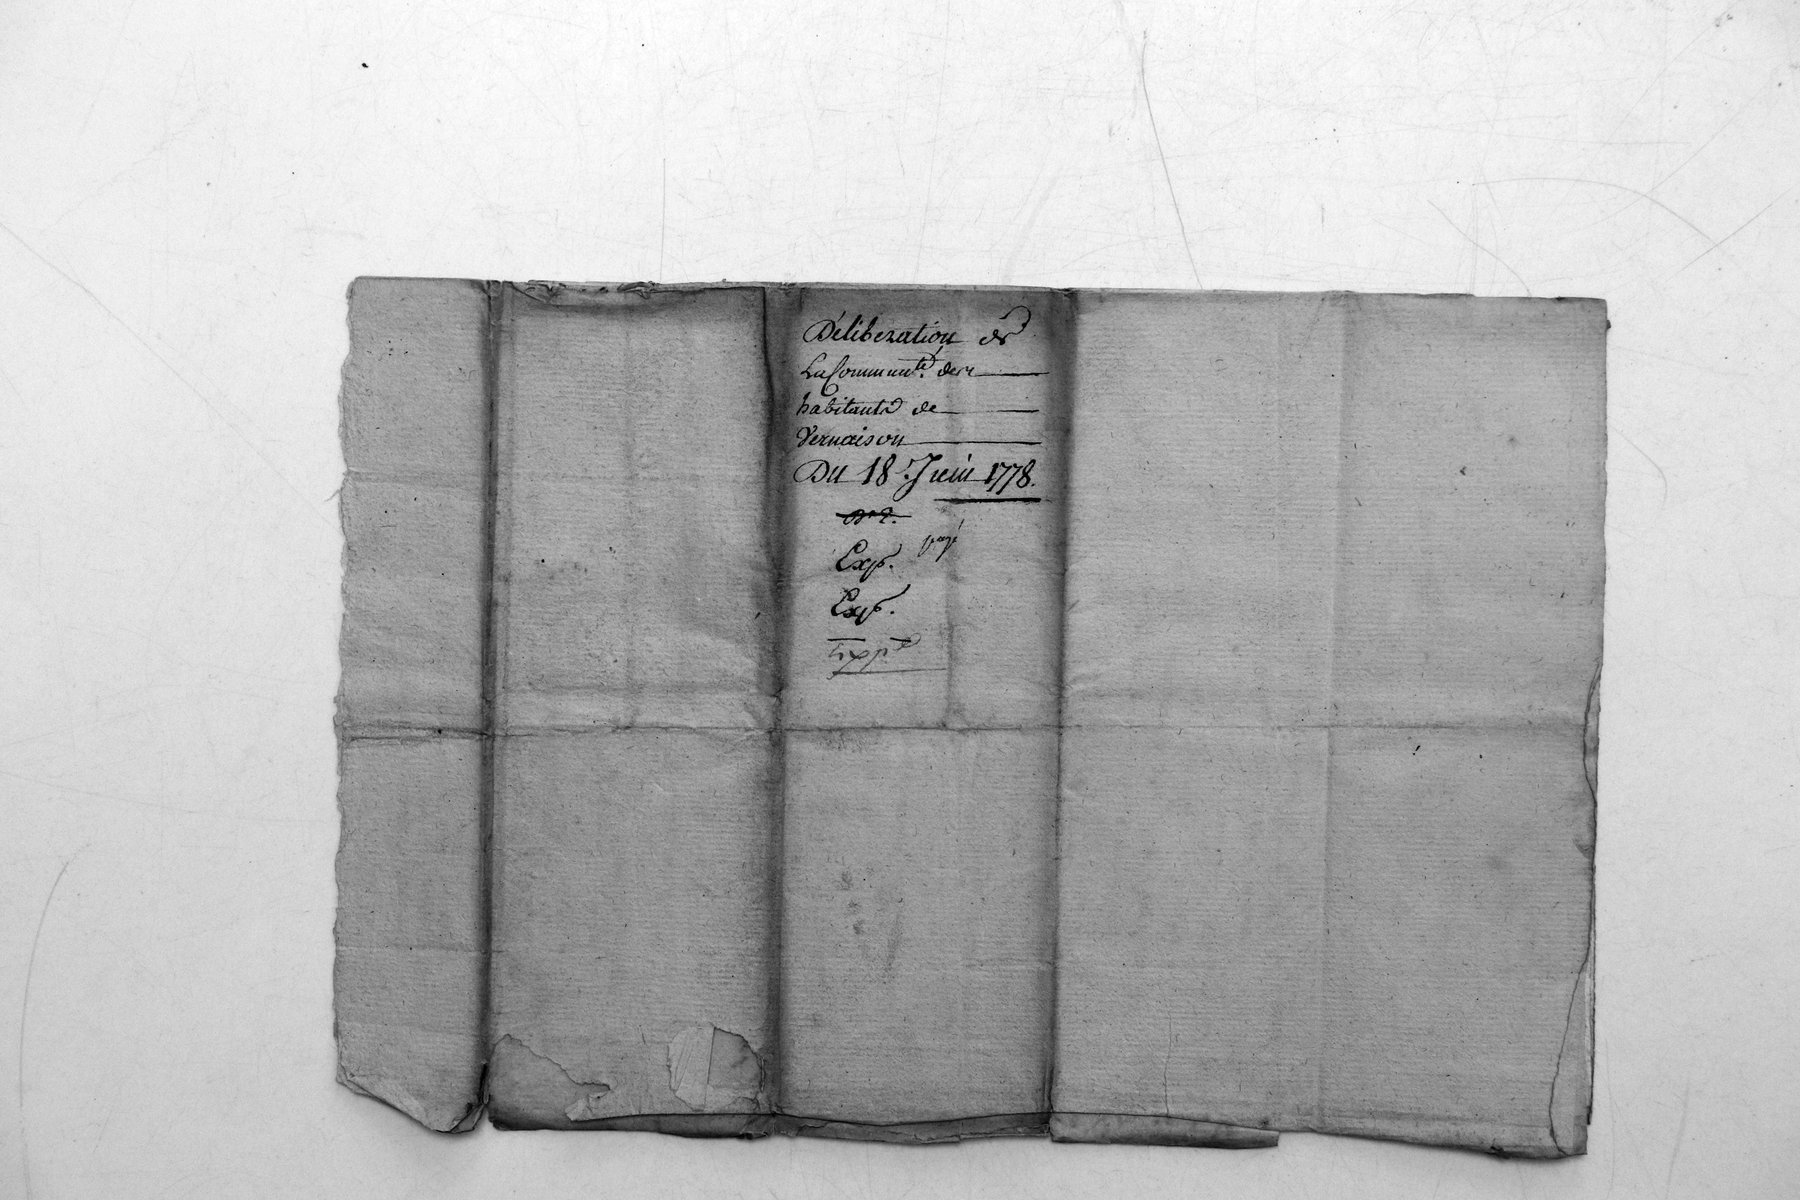 Déliberation de
La Communté. des
habitants de
Vernaison
Du 18 Juin 1778.
payé
Exp.
Exp.